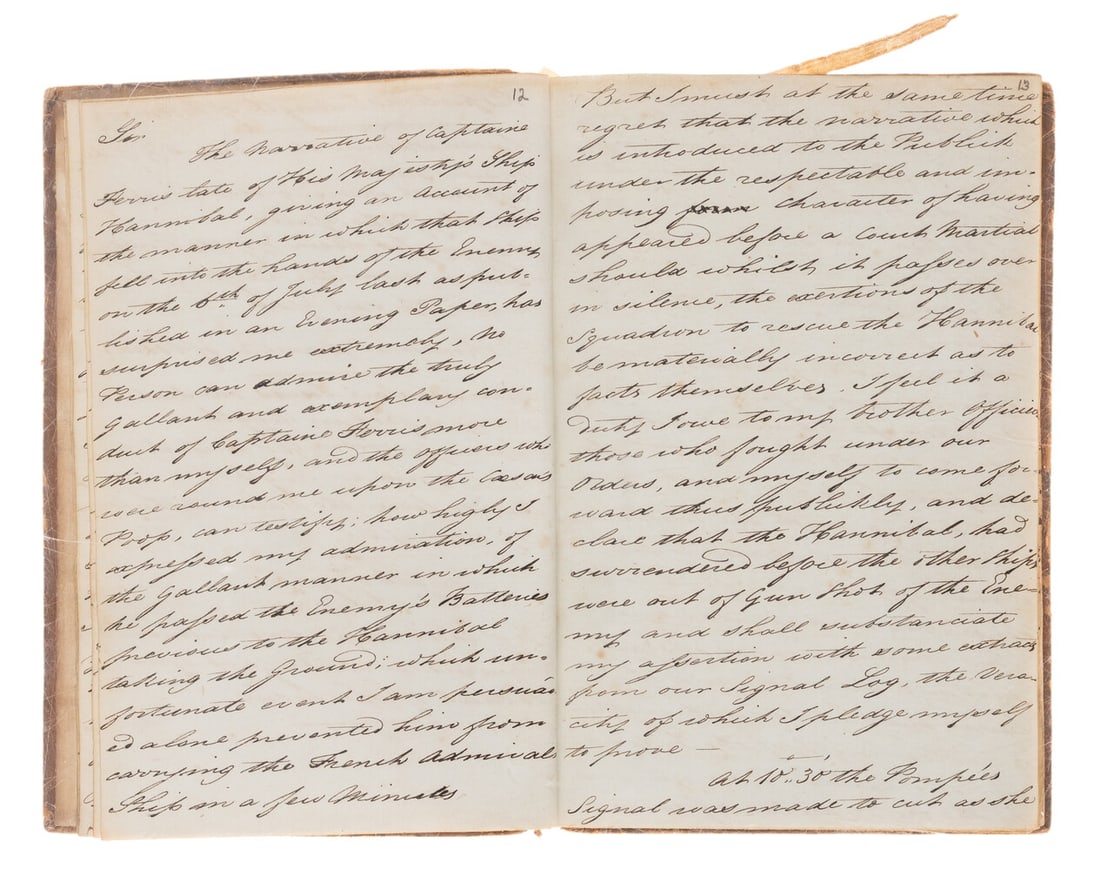 12
Sir
The Narrative of Captaine
Ferris late of His Majesty's Ship
Hannibal, giving an account of
the manner in which that Ship
fell into the hands of the Enemy
on the 6th of July last as pub-
lished in an Evening Paper, has
surprised me extremely, No
Person can admire the truly
Gallant and exemplary con-
duct of Captaine Ferris more
than myself, and the officers who
were round me upon the Cæsar's
Poop, can testify; how highly I
expressed my admiration, of
the Gallant manner in which
he passed the Enemy's Batteries
previous to the Hannibal
taking the Ground; which un-
fortunate event I am persuad-
ed alone prevented him from
carrying the French Admirals
Ship in a few Minutes
13
But I must at the same time
regret that the narrative which
is introduced to the Publick
under the respectable and im-
posing character of having
appeared before a Court Martial
should whilst it passes over
in silence, the exertions of the
Squadron to rescue the Hannibal
be materially incorrect as to
facts themselves. I feel it a
duty I owe to my brother Officers
those who fought under our
Orders, and myself to come for-
ward thus publickly, and de-
clare that the Hannibal, had
surrendered before the other Ships
were out of Gun Shot of the Ene-
my and shall substanciate
my assertion with some extracts
from our Signal Log, the Vera-
city of which I pledge myself
to prove —
At 10..30' the Pompées
Signal was made to cut as she